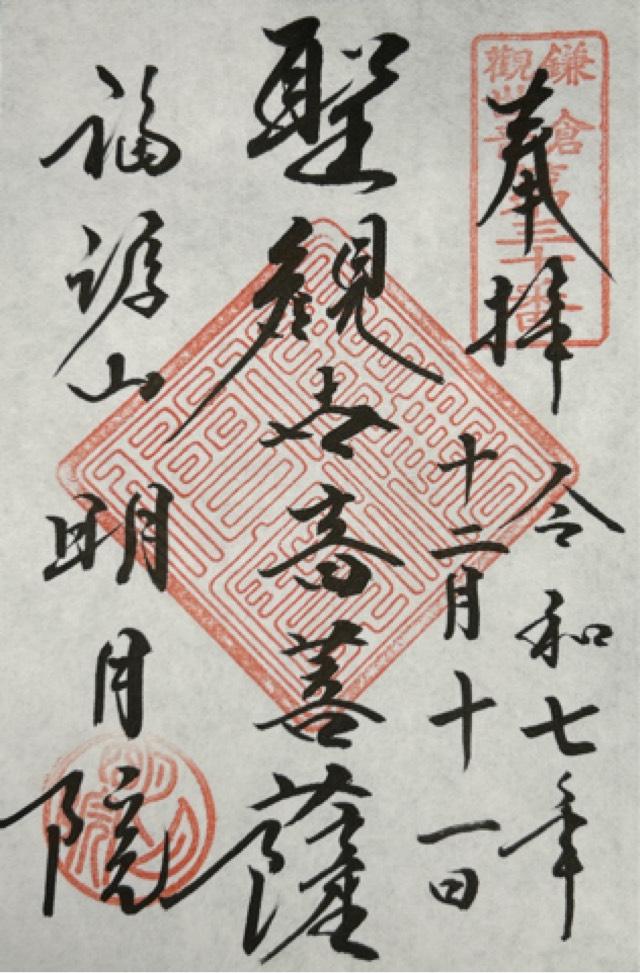 鎌倉
觀世音
第三十番
奉拝
令和七年
十二月十一日
聖觀世音菩薩
福源山明月院